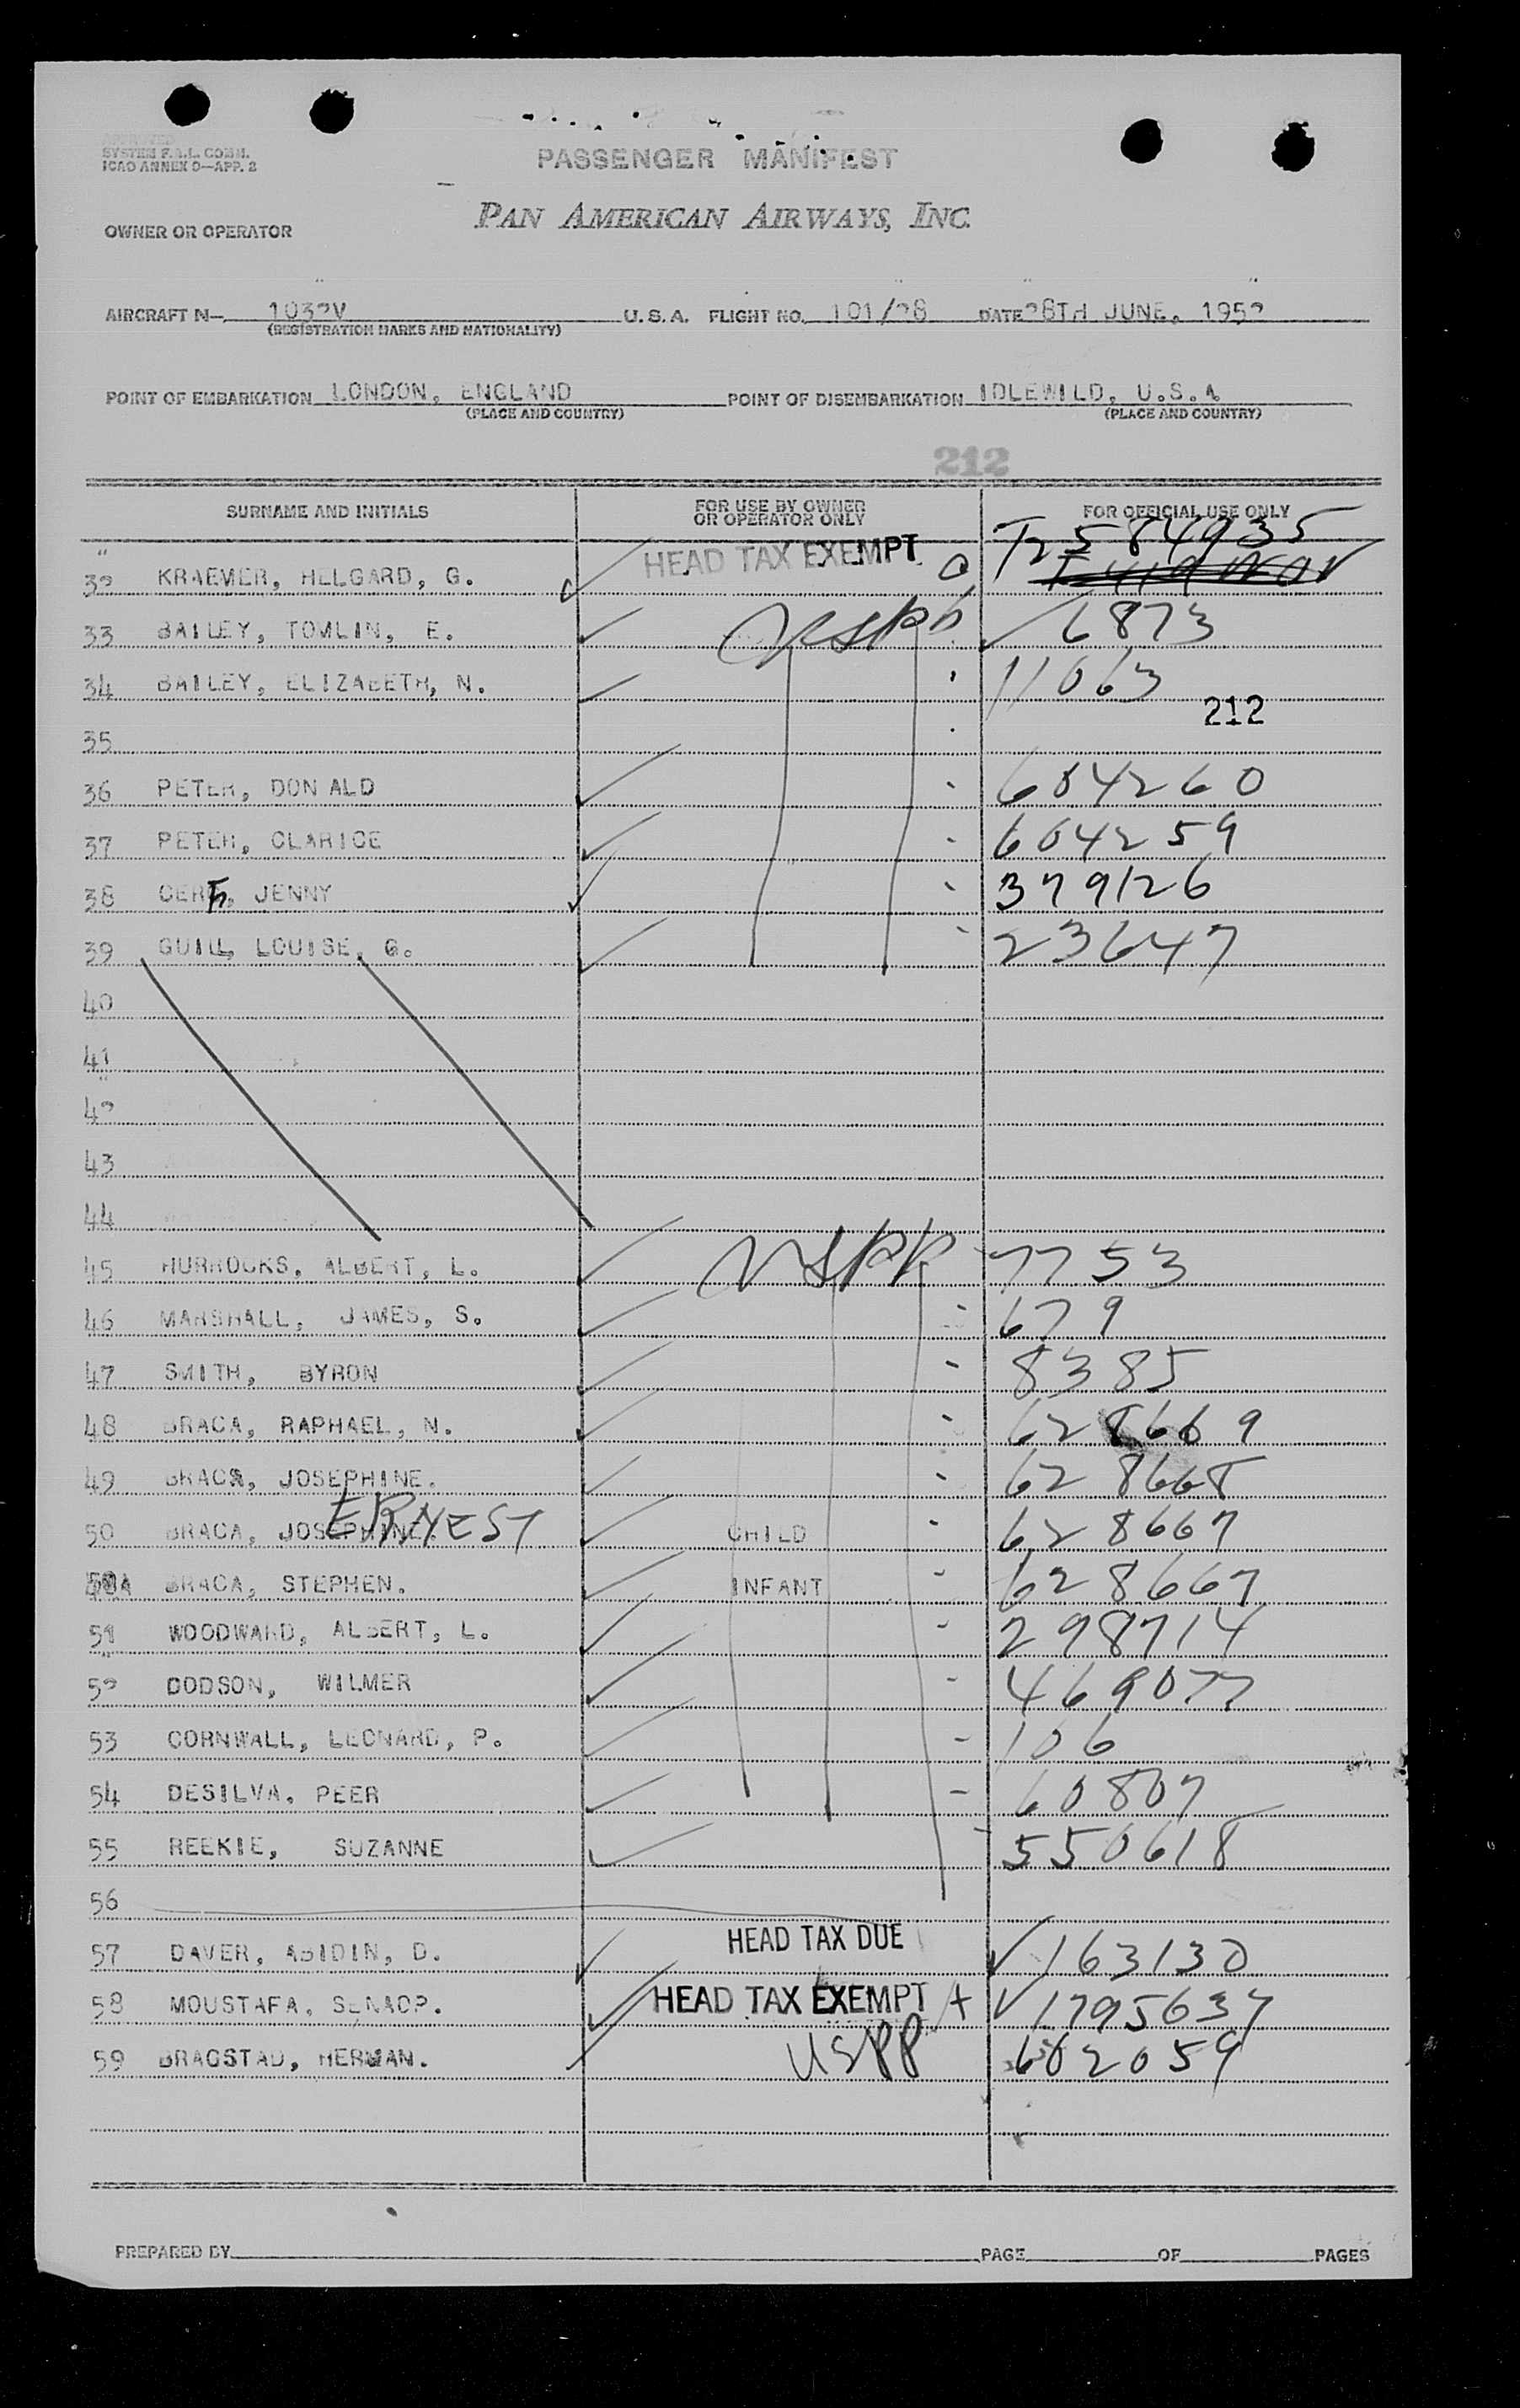 APPROVED
SYSTEM F.A.L. COMM.
ICAO ANNEX 9—APP. 2
PASSENGER MANIFEST
OWNER OR OPERATOR PAN AMERICAN AIRWAYS, INC.
AIRCRAFT N— 1032V U.S.A. FLIGHT NO. 101/28 DATE 28TH JUNE, 1952
(REGISTRATION MARKS AND NATIONALITY)
POINT OF EMBARKATION LONDON, ENGLAND POINT OF DISEMBARKATION IDLEWILD, U.S.A.
(PLACE AND COUNTRY) (PLACE AND COUNTRY)
212
SURNAME AND INITIALS FOR USE BY OWNER OR OPERATOR ONLY FOR OFFICIAL USE ONLY
32 KRAEMER, HELGARD, G. HEAD TAX EXEMPT T25 584935
33 BAILEY, TOMLIN, E. USPP 6873
34 BAILEY, ELIZABETH, N. 11063
212
35
36 PETER, DONALD 604260
37 PETER, CLARICE 604259
38 JENNY 379126
39 GUILL, LOUISE, G. 23647
40
41
42
43
44
45 HURROCKS, ALBERT, L. USPP 7753
46 MARSHALL, JAMES, S. 679
47 SMITH, BYRON 8385
48 BRACA, RAPHAEL, N. 628669
49 BRACA, JOSEPHINE. 628668
50 BRACA, JOSEPHINE. ERNEST CHILD 628667
50A BRACA, STEPHEN. INFANT 628667
51 WOODWARD, ALBERT, L. 298714
52 DODSON, WILMER 469077
53 CORNWALL, LEONARD, P. 106
54 DESILVA, PEER 60807
55 REEKIE, SUZANNE 550618
56
57 DAVER, ABIDIN, D. HEAD TAX DUE 163130
58 MOUSTAFA, SENAOP. HEAD TAX EXEMPT 1795637
59 BRAGSTAD, HERMAN. USPP 602059
PREPARED BY PAGE OF PAGES